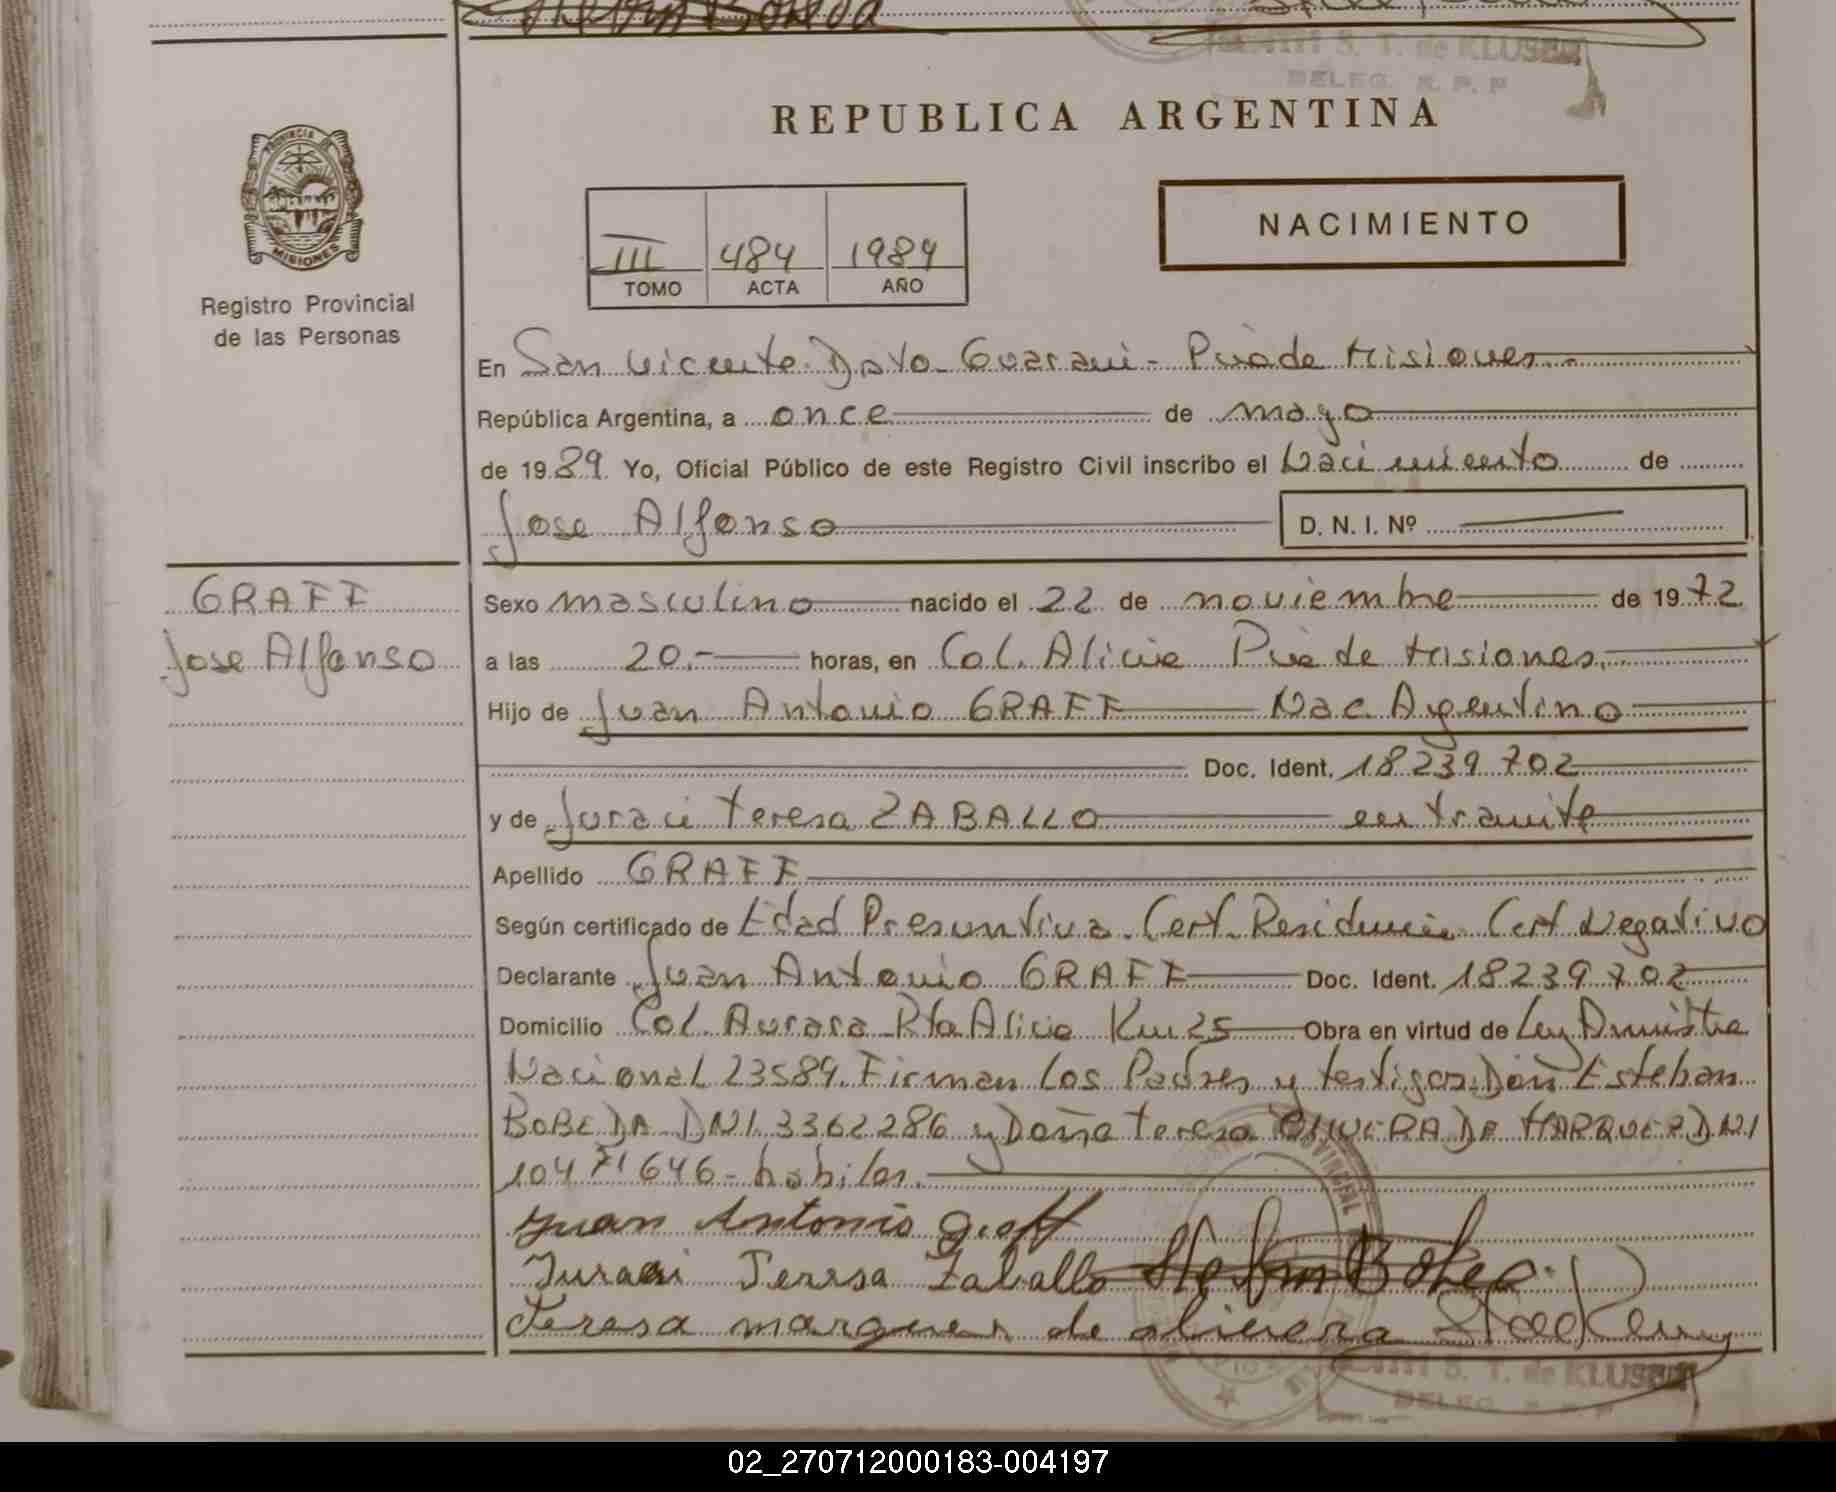 S. T. de KLUSER
DELEG. R. P. P
REPUBLICA ARGENTINA
PROVINCIA DE
MISIONES
NACIMIENTO
III 484 1989
TOMO ACTA AÑO
Registro Provincial
de las Personas
En San Vicente Dpto Guarani - Pcia de Misiones.-
República Argentina, a once de mayo
de 1989. Yo, Oficial Público de este Registro Civil inscribo el Nacimiento de
Jose Alfonso D. N. I. Nº
GRAFF
Jose Alfonso
Sexo masculino nacido el 22 de noviembre de 1972
a las 20.- horas, en Col. Alicia Pcia de Misiones.
Hijo de Juan Antonio GRAFF Nac Argentino
Doc. Ident. 18239702
y de Juraci Teresa ZABALLO en tramite
Apellido GRAFF
Según certificado de Edad Presuntiva. Cert. Residencia Cert Negativo
Declarante Juan Antonio GRAFF Doc. Ident. 18239702
Domicilio Col. Aurora Rta Alicia Km 25 Obra en virtud de Ley Amnistia
Nacional 23589. Firman los Padres y testigos Don Esteban
BOBEDA DNI 3362286 y Doña Teresa OLIVERA DE MARQUEZ DNI
10471646 - habiles.
Juan Antonio graff
Juraci Teresa Zaballo
Teresa marques de olivera
S. T. de KLUSER
DELEG. R. P. P
02_270712000183-004197